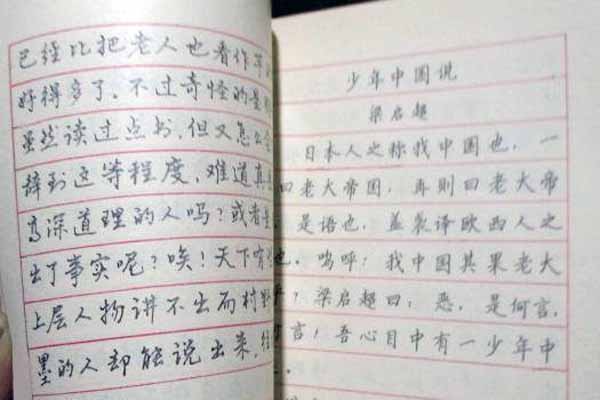 已经比把老人也看作等
好得多了。不过奇怪的是
虽然读过点书，但又怎么会
辞到这等程度，难道真
高深道理的人吗？或者
出了事实呢？唉！天下有
上层人物讲不出而村野
墨的人却能说出来，
少年中国说
梁启超
日本人之称我中国也，一
曰老大帝国，再则曰老大帝
是语也，盖袭译欧西人之
也。呜呼！我中国其果老大
！梁启超曰：恶，是何言，
言！吾心目中有一少年中